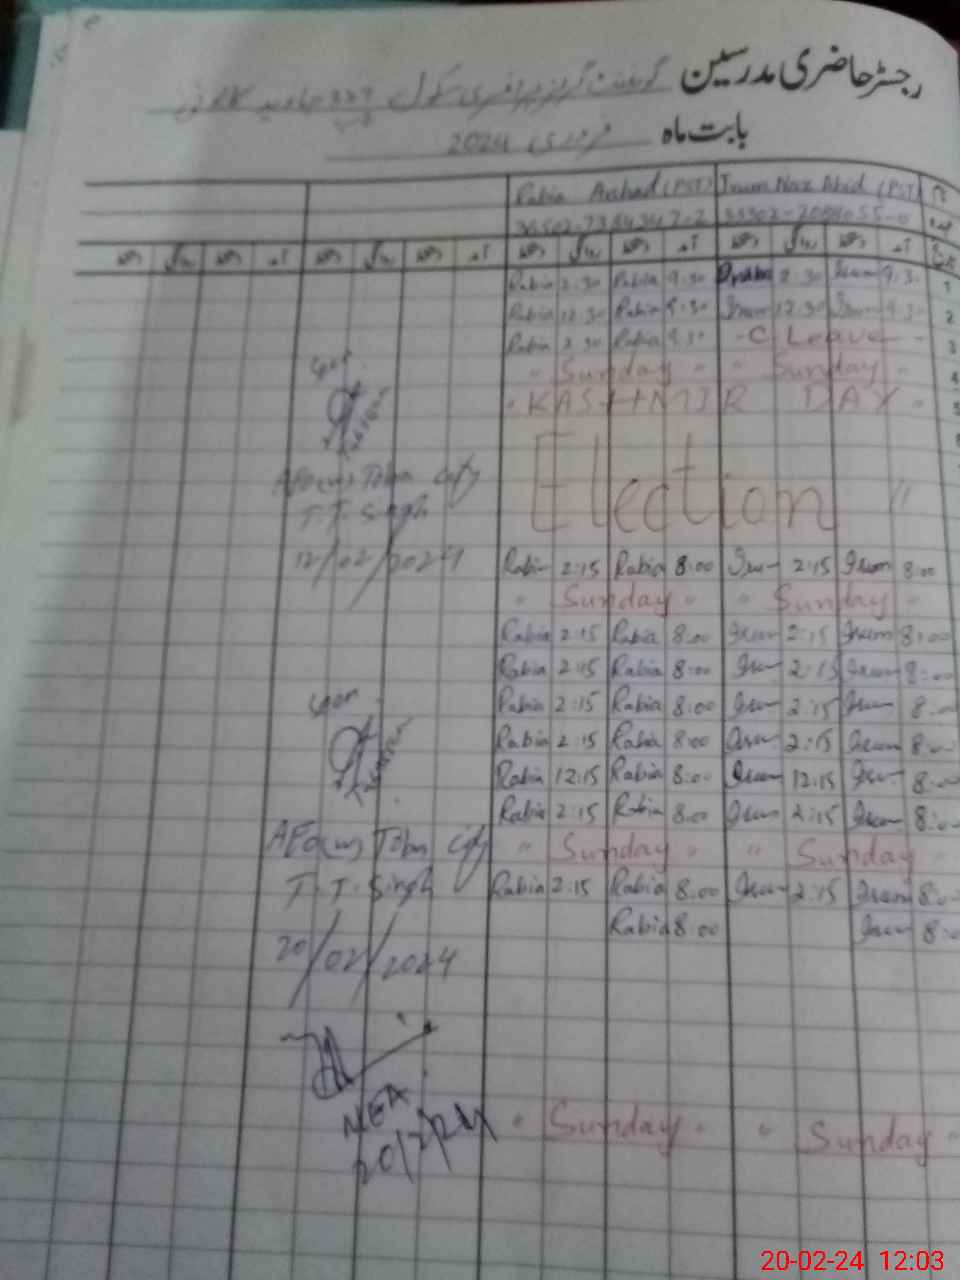 رجسٹر حاضری مدرسین گورنمنٹ گرلز پرائمری سکول 327
بابت ماہ فروری 2024
Rabia Arshad (PST) Irum Naz Abid (PST)
دستخط روانگی دستخط آمد دستخط روانگی دستخط آمد دستخط روانگی دستخط آمد دستخط روانگی دستخط آمد
Rabia 2:30 Rabia 9:30 2:30 Irum 9:30 1
Rabia 12:30 Rabia 9:30 Irum 12:30 Irum 9:30 2
Rabia 2:30 Rabia 9:30 - C Leave - 3
" Sunday " " Sunday " 4
" KASHMIR DAY " 5
Election "
AEO(w) Toba City
T.T. Singh
12/02/2024
Rabia 2:15 Rabia 8:00 Irum 2:15 Irum 8:00
" Sunday " " Sunday "
Rabia 2:15 Rabia 8:00 Irum 2:15 Irum 8:00
Rabia 2:15 Rabia 8:00 Irum 2:15 Irum 8:00
Rabia 2:15 Rabia 8:00 Irum 2:15 Irum 8:00
Rabia 2:15 Rabia 8:00 Irum 2:15 Irum 8:00
Rabia 12:15 Rabia 8:00 Irum 12:15 Irum 8:00
Rabia 2:15 Rabia 8:00 Irum 2:15 Irum 8:00
" Sunday " " Sunday "
Rabia 2:15 Rabia 8:00 Irum 2:15 Irum 8:00
Rabia 8:00 Irum 8:00
AEO(w) Toba City
T.T. Singh
20/02/2024
MEA
20/2/24
" Sunday " " Sunday "
20-02-24 12:03